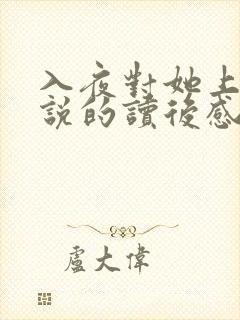 入夜對她上
說的讀後感
盧大偉